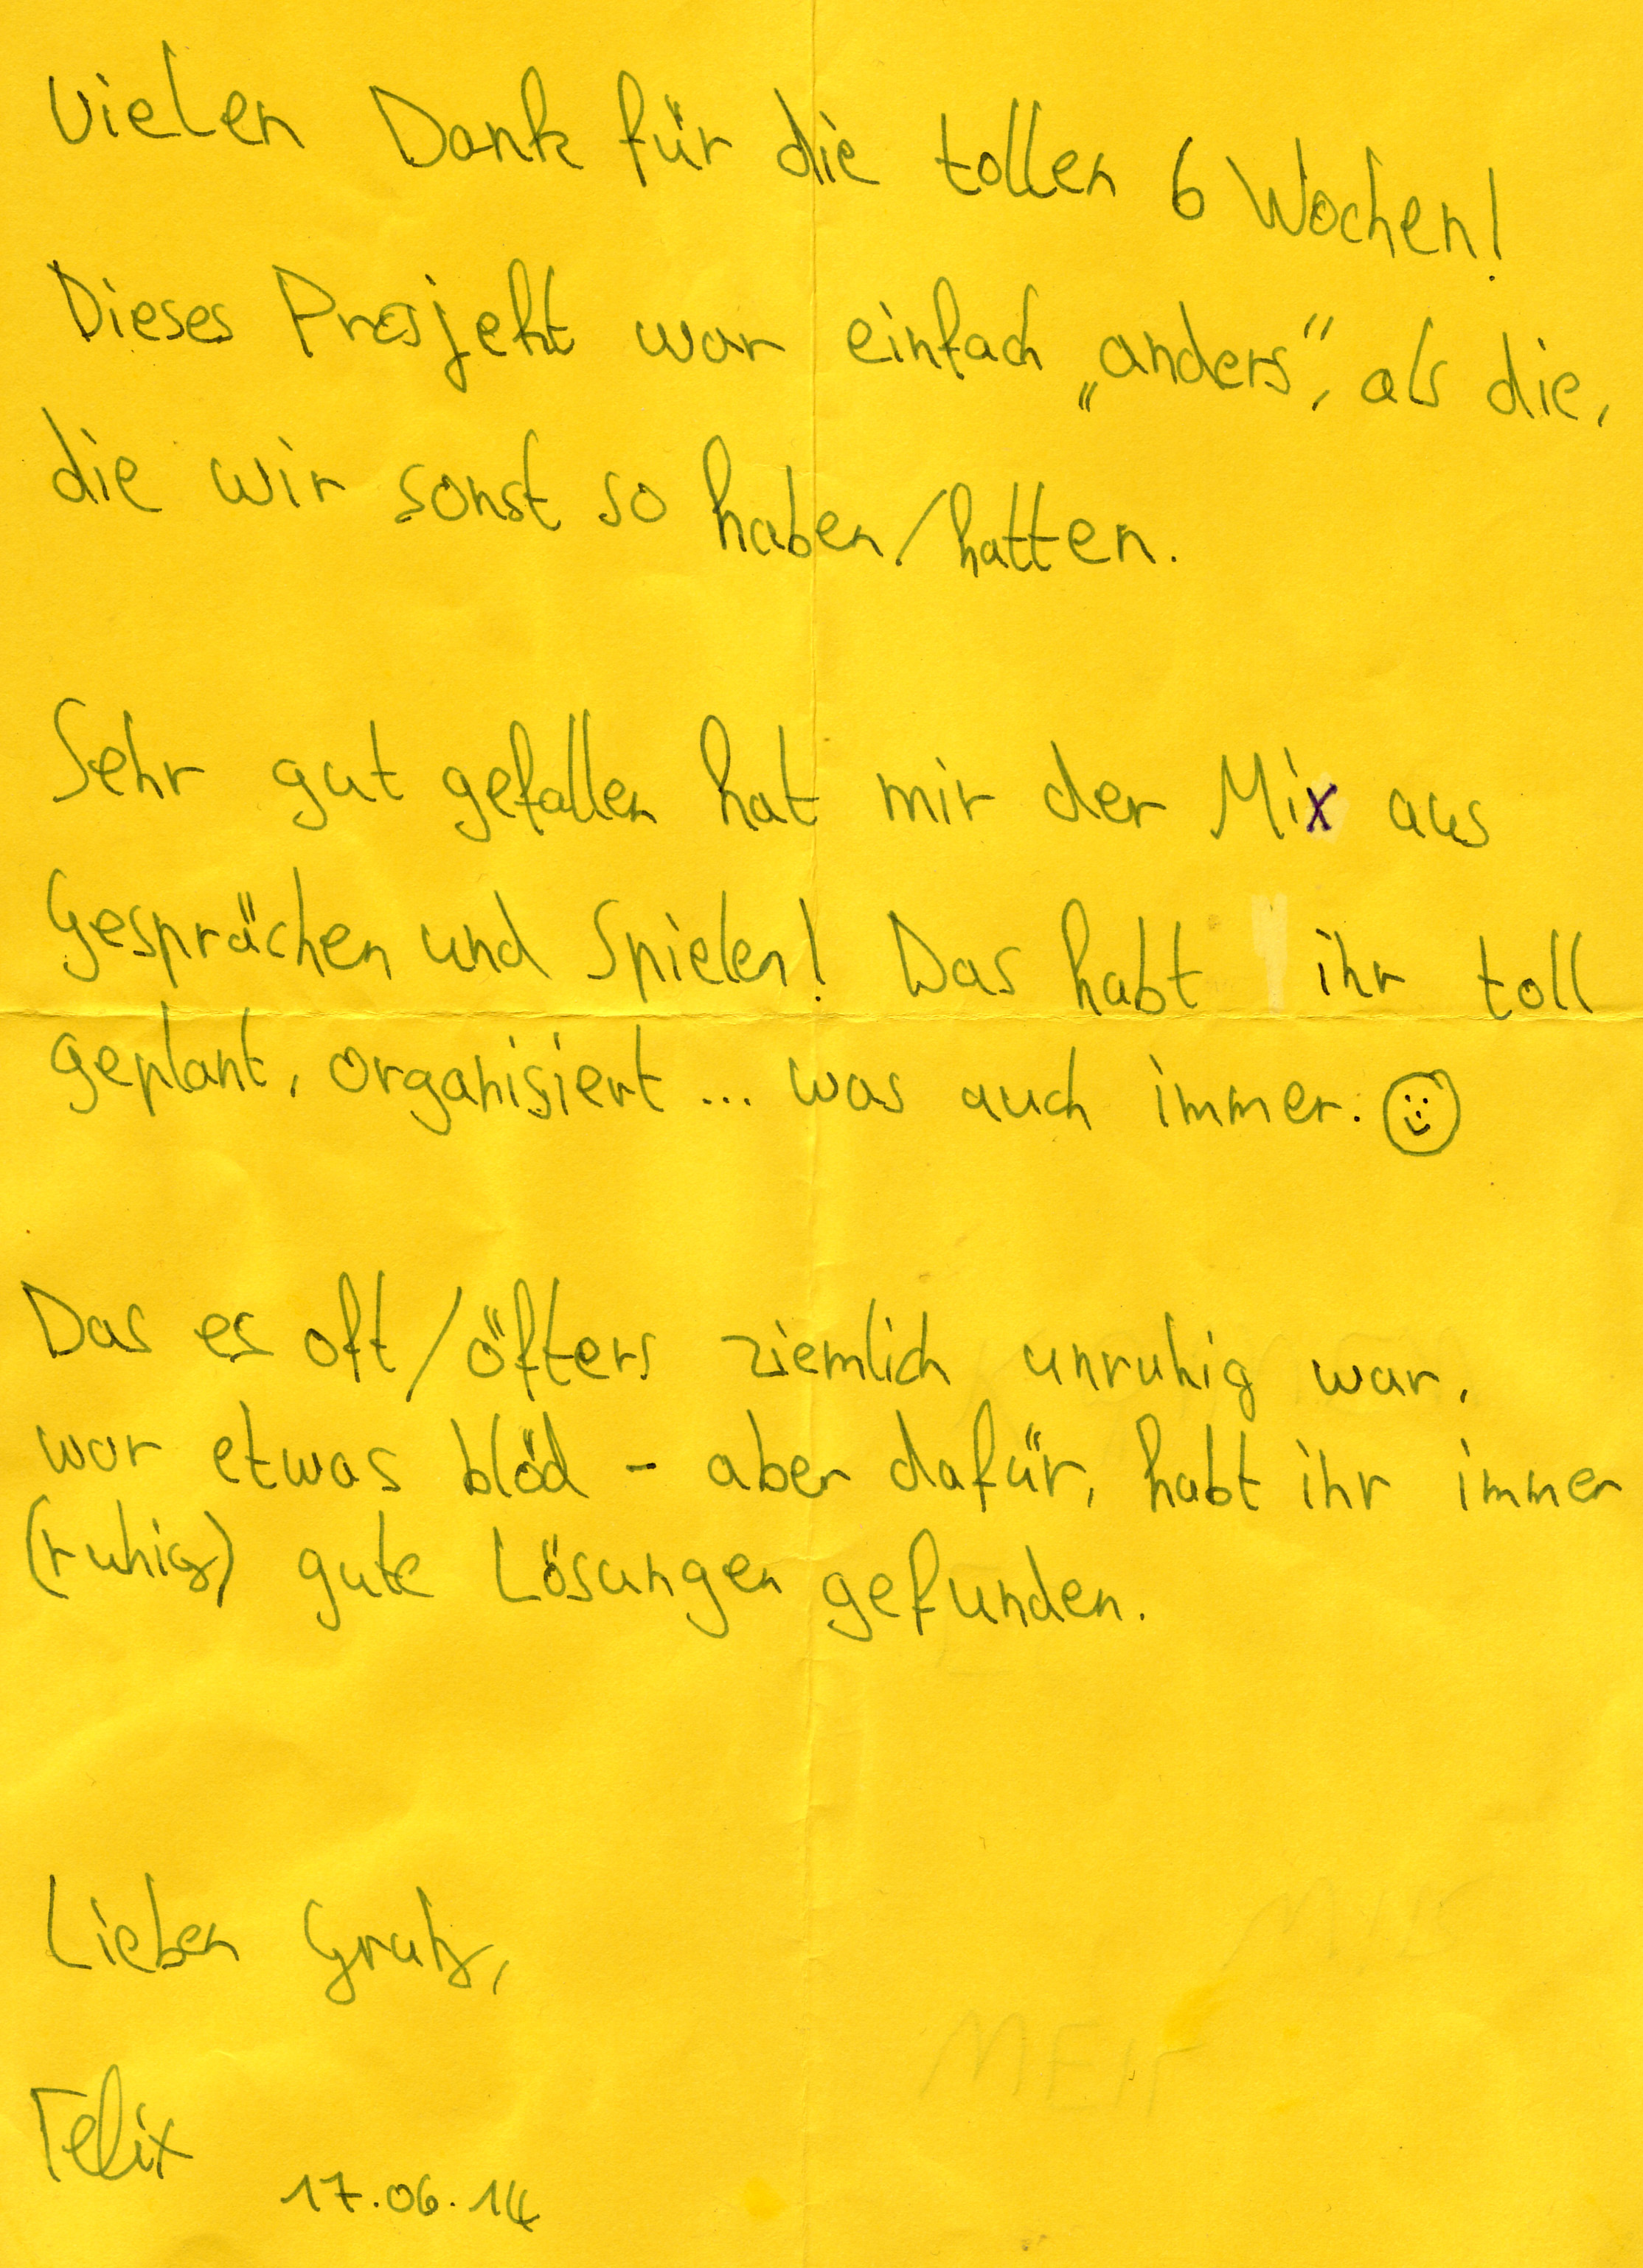 Vielen Dank für die tollen 6 Wochen!
Dieses Projekt war einfach „anders“, als die,
die wir sonst so haben/hatten.
Sehr gut gefallen hat mir der Mix aus
Gesprächen und Spielen! Das habt ihr toll
geplant, organisiert ... was auch immer. ☺
Das es oft/öfters ziemlich unruhig war,
war etwas blöd - aber dafür, habt ihr immer
(ruhig) gute Lösungen gefunden.
Lieben Gruß,
Felix
17.06.14